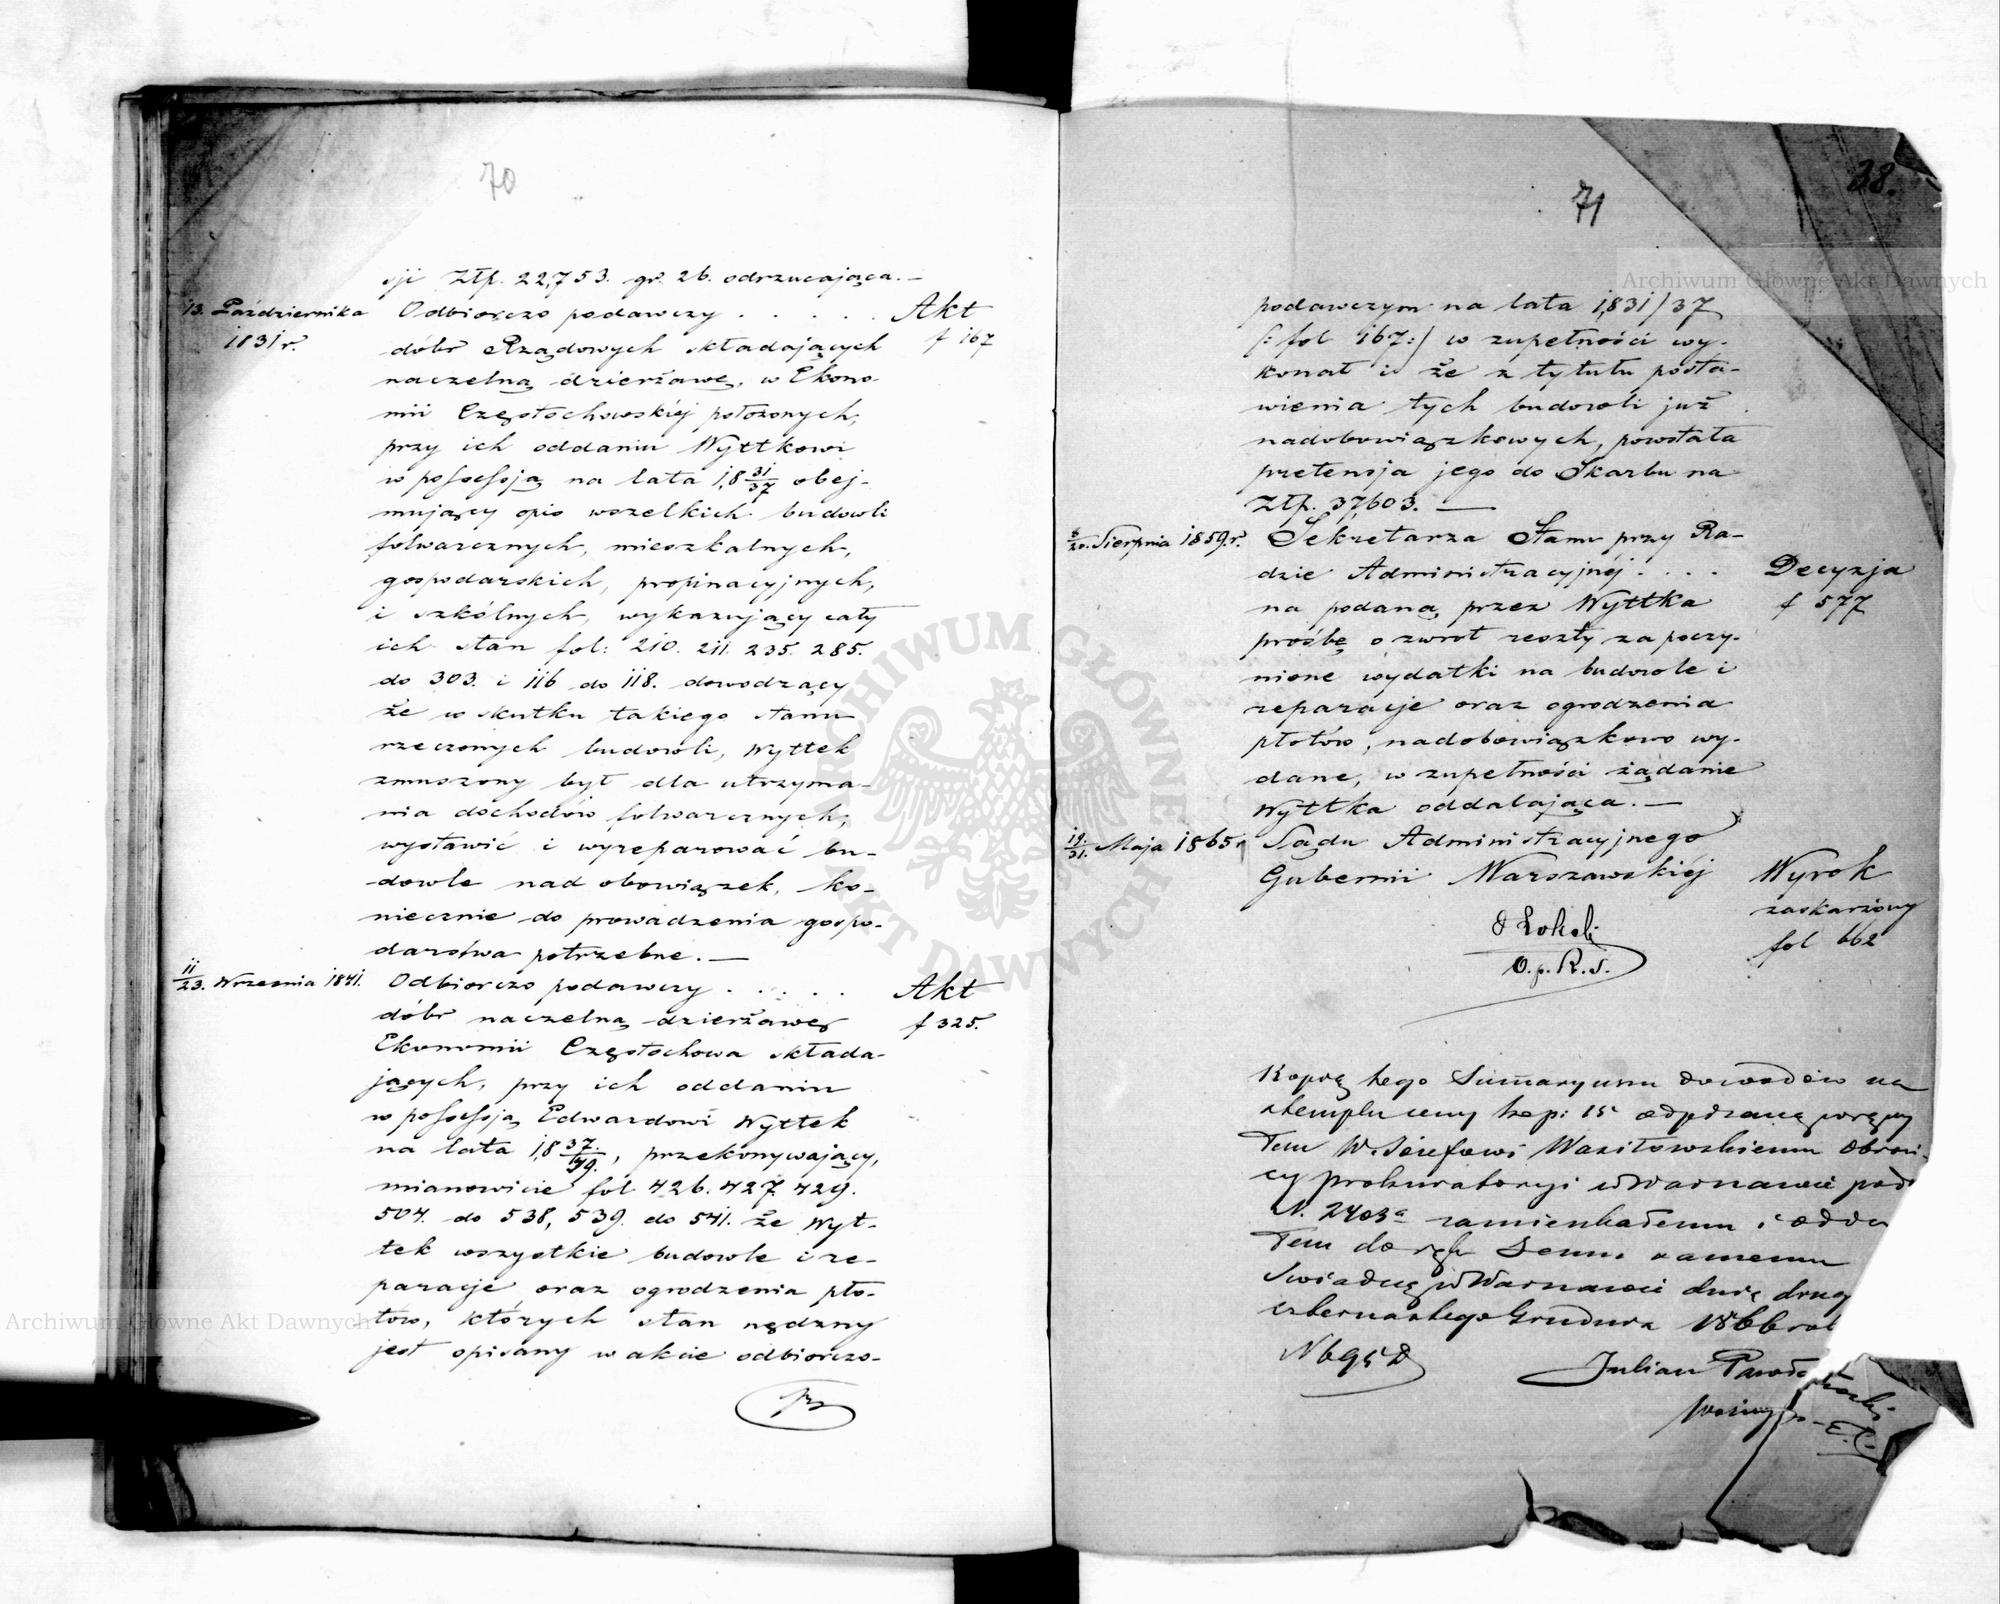 70
sji Złp. 22,753. gr. 26. odrzucająca. —
13. Października
1831 r.
Odbiorczo podawczy . . . . . Akt
f 167
dóbr Rządowych składających
naczelną dzierżawę, w Ekono-
mii Częstochowskiéj położonych,
przy ich oddaniu Wyttkowi
w possessją na lata 18 31/37 obej-
mujący opis wszelkich budowli
folwarcznych, mieszkalnych,
gospodarskich, propinacyjnych,
i szkólnych, wykazujący cały
ich stan fol: 210. 211. 235. 285.
do 303. i 116 do 118. dowodzący
że w skutku takiego stanu
rzeczonych budowli, Wyttek
zmuszony był dla utrzyma-
nia dochodów folwarcznych,
wystawić i wyreparować bu-
dowle nad obowiązek, ko-
niecznie do prowadzenia gospo-
darstwa potrzebne. —
11/23. Września 1841.
Odbiorczo podawczy . . . . . Akt
f 325.
dóbr naczelną dzierżawę
Ekonomii Częstochowa składa-
jących, przy ich oddaniu
w possessją Edwardowi Wyttek
na lata 18 37/49., przekonywający,
mianowicie fol 426. 427. 429.
504. do 538, 539. do 541. że Wyt-
tek wszystkie budowle i re-
paracje oraz ogrodzenia pło-
tów, których stan nędzny
jest opisany w akcie odbiorczo-
38.
71
podawczym na lata 1831/37
/: fol 167:/ w zupełności wy-
konał i że z tytułu posta-
wienia tych budowli już
nadobowiązkowych, powstała
pretensja jego do Skarbu na
Złp. 37,603. —
8/20. Sierpnia 1859.r.
Sekretarza Stanu przy Ra-
dzie Administracyjnéj . . . . Decyzja
f 577
na podaną przez Wyttka
prośbę o zwrot reszty za poczy-
nione wydatki na budowle i
reparacje oraz ogrodzenia
płotów, nadobowiązkowo wy-
dane, w zupełności żądanie
Wyttka oddalająca. —
19/31. Maja 1865 r
Sądu Administracyjnego
Gubernii Warszawskiéj Wyrok
zaskarżony
fol 662
O. p. R. S.
Kopię tego Sumaryusu dowodów na
stemplu ceny kop: 15 odpisaną wręczy
Tem W. Józefowi Wasiłowskiemu Obroń-
cy Prokuratoryi w Warszawie pod
N. 2403a zamieszkałemu i odda
Tem do rąk Jemu samemu
Świadczę w Warszawie dnia drug
czternastego Grudnia 1866 rok
N 695 D
Julian
Woźny